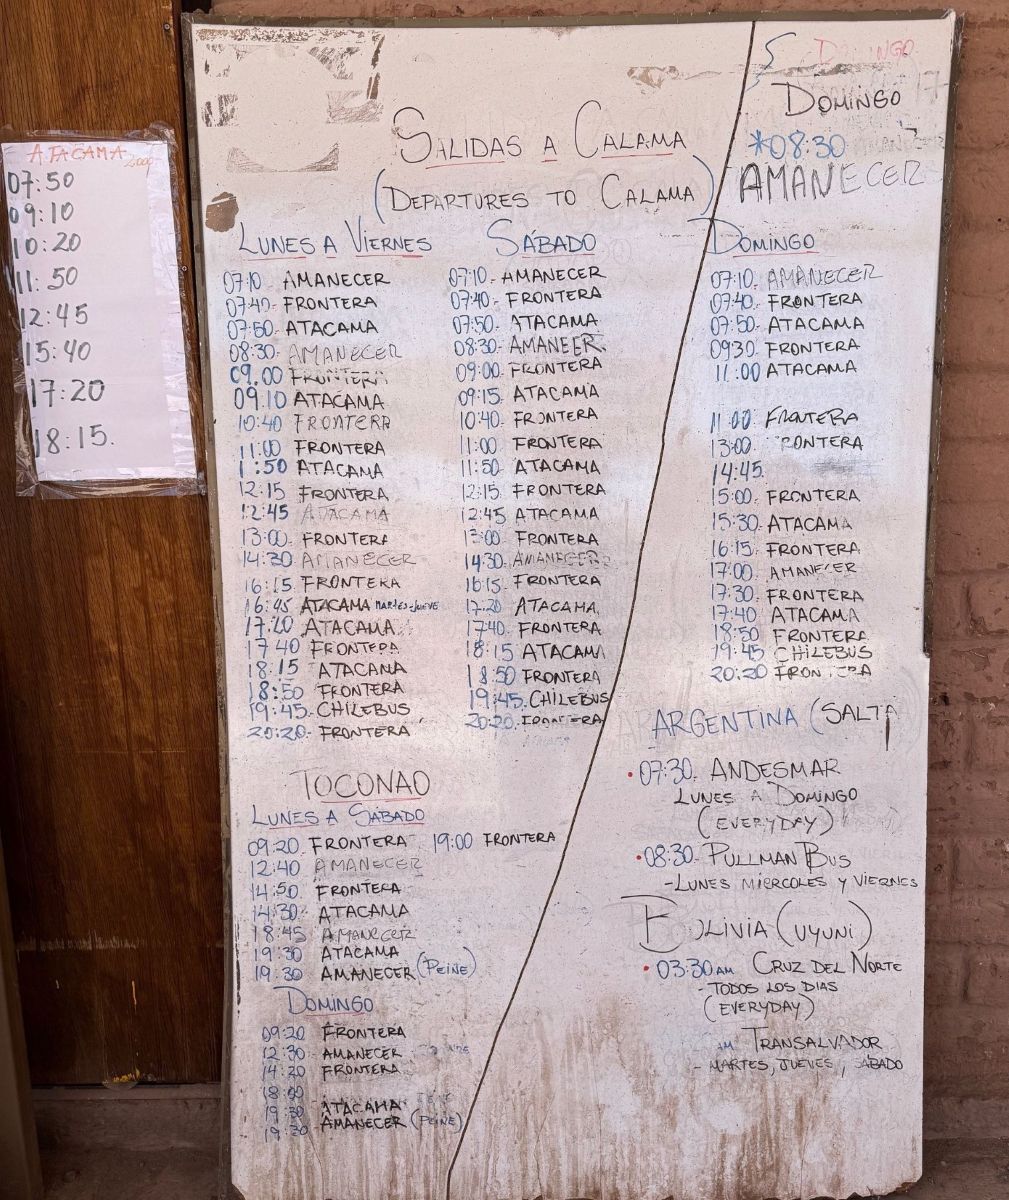 ATACAMA
07:50
09:10
10:20
11:50
12:45
15:40
17:20
18:15.
SALIDAS A CALAMA
(DEPARTURES TO CALAMA)
LUNES A VIERNES
07:10 AMANECER
07:40- FRONTERA
07:50- ATACAMA
08:30- AMANECER
09.00 FRONTERA
09.10 ATACAMA
10:40 FRONTERA
11:00 FRONTERA
1:50 ATACAMA
12:15 FRONTERA
12:45 ATACAMA
13:00- FRONTERA
14:30 AMANECER
16:15 FRONTERA
16:45 ATACAMA MARTES-JUEVE
17:20 ATACAMA
17 40 FRONTERA
18:15 ATACAMA
18:50 FRONTERA
19:45- CHILEBUS
20:20- FRONTERA
SÁBADO
07:10- AMANECER
07:40- FRONTERA
07:50- ATACAMA
08:30- AMANEER
09:00 FRONTERA
09:15 ATACAMA
10:40 FRONTERA
11:00 FRONTERA
11:50 ATACAMA
12:15 FRONTERA
12:45 ATACAMA
13:00 FRONTERA
14:30 AMANECER
16:15 FRONTERA
17:20 ATACAMA
17:40 FRONTERA
18:15 ATACAMA
18:50 FRONTERA
19:45- CHILEBUS
20:20- FRONTERA
DOMINGO
DOMINGO
*08:30
AMANECER
DOMINGO
07:10 AMANECER
07:40- FRONTERA
07:50- ATACAMA
09:30 FRONTERA
11:00 ATACAMA
11:00 FRONTERA
13:00 RONTERA
14:45.
15:00- FRONTERA
15:30- ATACAMA
16:15- FRONTERA
17:00 AMANECER
17:30- FRONTERA
17:40 ATACAMA
18:50 FRONTERA
19:45 CHILEBUS
20:20 FRONTERA
TOCONAO
LUNES A SÁBADO
09:20 FRONTERA 19:00 FRONTERA
12:40 AMANECER
14:50 FRONTERA
14:30 ATACAMA
18:45 AMANECER
19:30 ATACAMA
19:30 AMANECER (PEINE)
DOMINGO
09:20 FRONTERA
12:30 AMANECER
14:20 FRONTERA
18:00
19:30 ATACAMA
19:30 AMANECER (PEINE)
ARGENTINA (SALTA
• 07:30 ANDESMAR
LUNES A DOMINGO
(EVERYDAY)
• 08:30- PULLMAN BUS
-LUNES MIERCOLES Y VIERNES
BOLIVIA (UYUNI)
• 03:30 AM CRUZ DEL NORTE
- TODOS LOS DIAS
(EVERYDAY)
AM TRANSALVADOR
- MARTES, JUEVES, SÁBADO